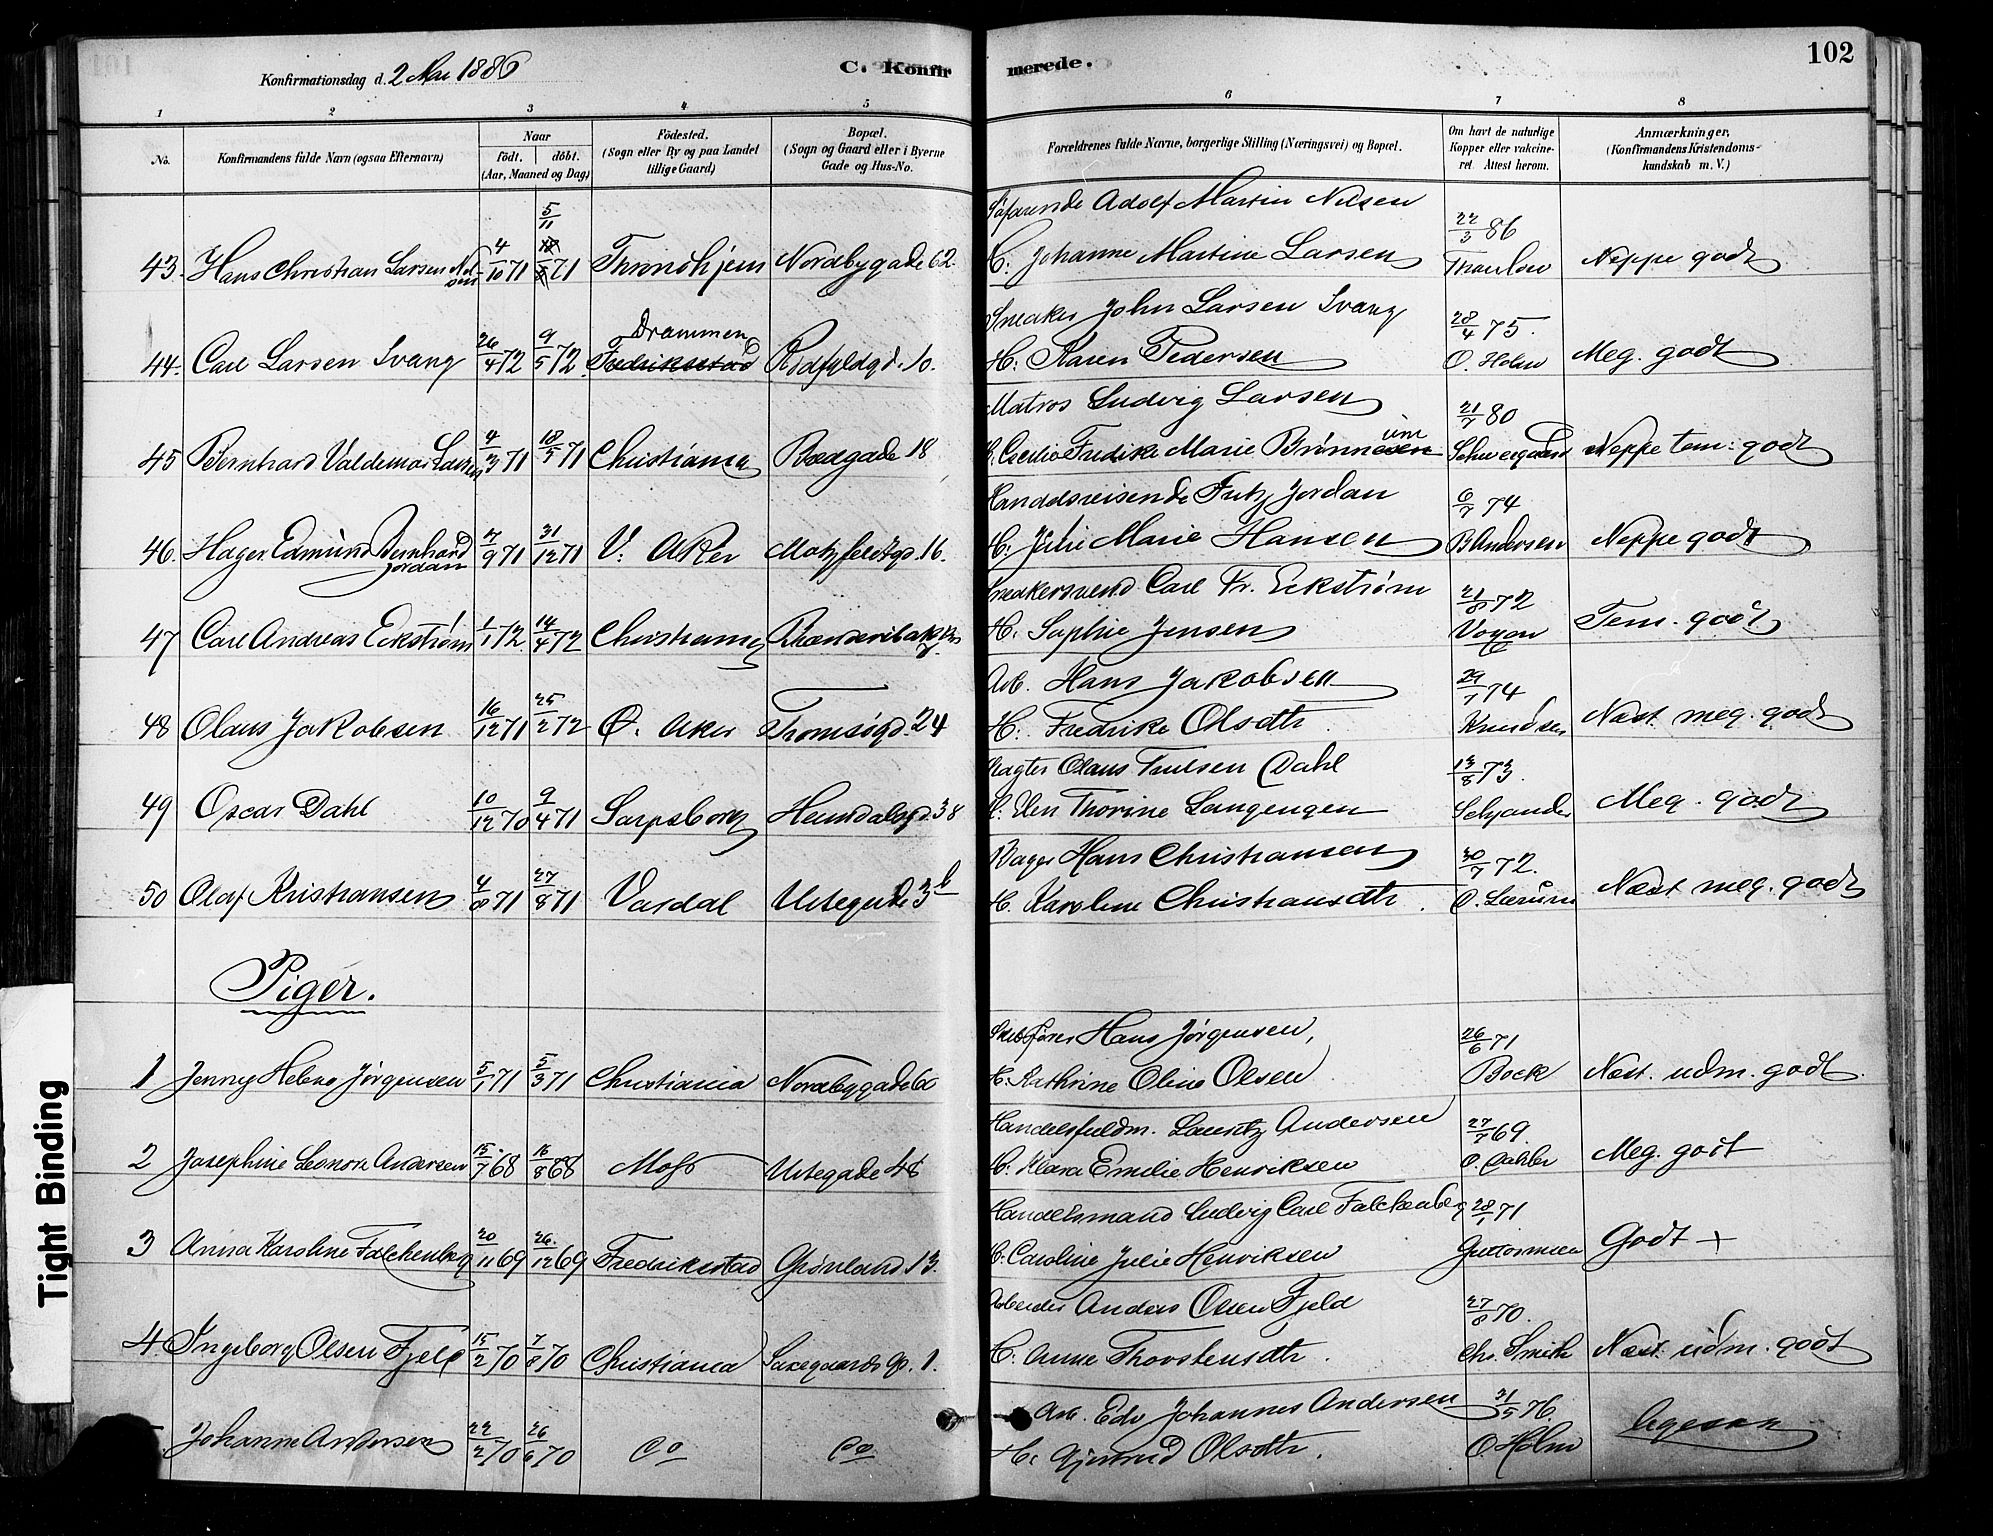 102
Konfirmationsdag d. 2 Mai 1886
C. Konfirmerede.
1 2 3 4 5 6 7 8
No.
Konfirmandens fulde Navn (ogsaa Efternavn)
Naar
født. døbt.
(Aar, Maaned og Dag)
Fødested.
(Sogn eller By og paa Landet
tillige Gaard)
Bopæl.
(Sogn og Gaard eller i Byerne
Gade og Hus-No.
Forældrenes fulde Navne, borgerlige Stilling (Næringsvei) og Bopæl.
Om havt de naturlige
Kopper eller vakcine-
ret. Attest herom.
Anmærkninger.
(Konfirmandens Kristendoms-
kundskab m. V.)
Søfarende Adolf Martin Nilsen
43. Hans Christian Larsen Nilsen 4/10 71 5/11 71 Throndhjem Nordbygade 62.
H. Johanne Martine Larsen 22/3 86 Thaulow Neppe godt
Snedker John Larsen Svang
44. Carl Larsen Svang 26/4 72 9/5 72 Drammen Fredriksstad Rødfyldgd. 10.
H. Karen Pedersen 28/4 75. O. Holm Meg. godt
Matros Ludvig Larsen
45 Bernhard Valdemar Larsen 4/3 71 18/5 71 Christiania Bredgade 18
H. Cecilie Fredrike Marie 21/7 80 Schweigaard Neppe tem: godt
Handelsreisende Fritz Jordan
46. Hager Edmund Bernhard Jordan 7/9 71 31/12 71 V. Aker Motzfeldtgd. 16.
H. Julie Marie Hansen 6/7 74 B Andersen Neppe godt
Snedkersvend Carl Fr. Eckstrøm
47 Carl Andreas Eckstrøm 1/1 72. 14/4 72 Christiania
H. Sophie Jensen 21/8 72 Tem. godt
Arb. Hans Jakobsen
48 Olaus Jakobsen 16/12 71 25/2 72 Ø. Aker Tromsøgd. 24
H. Fredrike Olsdtr. 29/1 74 Knudsen Næst meg. godt
Vagter Olaus Trulsen Dahl
49 Oscar Dahl 10/12 70 9/4 71 Sarpsborg Heimdalsgd. 38
H. Elen Thorine Langengen 13/8 73. Schjander Meg. godt
Bager Hans Christiansen
50 Olaf Kristiansen 4/8 71 27/8 71 Vardal Urtegade 3b
H. Karoline Christiansdtr. 30/7 72. O. Lærum Næst meg. godt
Piger.
Skibsfører Hans Jørgensen,
1 Jenny Helene Jørgensen 5/1 71 5/3 71 Christiania Nordbygade 60
H. Kathrine Oline Olsen 26/6 71 Bock Næst. udm. godt.
Handelsfuldm. Lauritz Andersen
2 Josephine Leonora Andersen 15/7 68 16/8 68 Moss Urtegade 48
H. Klara Emilie Henriksen 27/7 69. O. Dahler Meg. godt
Handelsmand Ludvig Carl Falckenberg
3 Anna Karoline Falckenberg 20/11 69 26/12 69 Fredrikstad Grønland 13.
H. Caroline Julie Henriksen 28/1 71 Guttormsen Godt +
Arbeider Anders Olsen Fjeld
4. Ingeborg Olsen Fjeld 15/2 70 7/8 70 Christiania Saxegaardsgd. 1.
H. Anne Thorstensdtr. 27/8 70. Chr. Smith Næst. udm. godt
Arb. Edv Johannes Andersen
Johanne Andersen 22/2 70 26/6 70 do do
H. Gjertrud Olsdtr. 31/5 76. O. Holm Ligesaa
Tight Binding